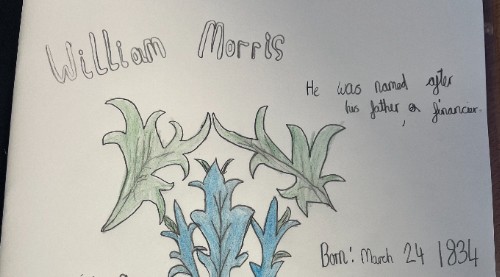 William Morris
He was named after
his father a financier.
Born: March 24 1834